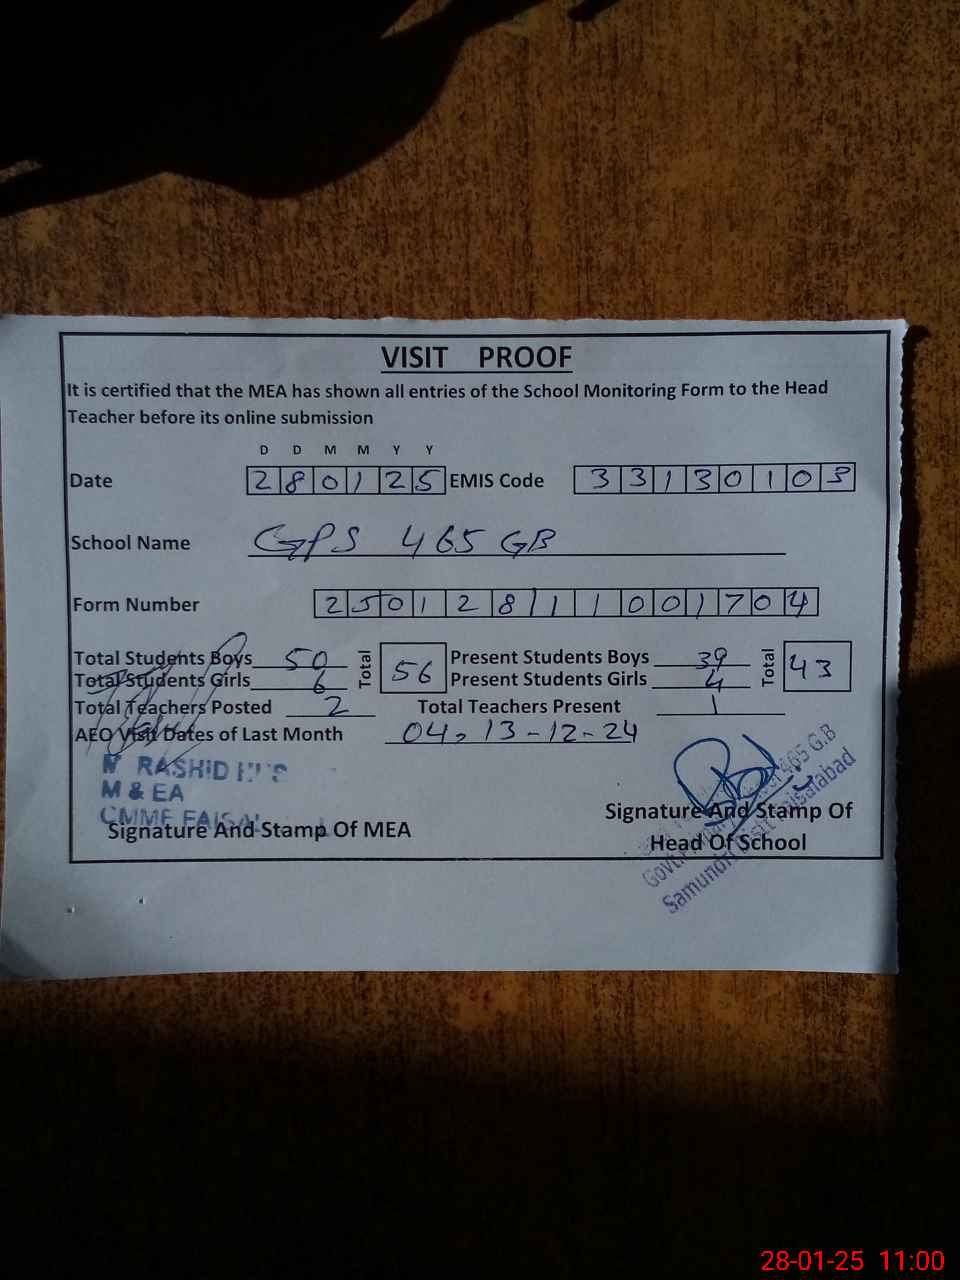 VISIT PROOF
It is certified that the MEA has shown all entries of the School Monitoring Form to the Head
Teacher before its online submission
D D M M Y Y
Date 280125 EMIS Code 33130103
School Name GPS 465 GB
Form Number 250128111001704
Total Students Boys 50 Total 56 Present Students Boys 39 Total 43
Total Students Girls 6 Present Students Girls 4
Total Teachers Posted 2 Total Teachers Present 1
AEO Visit Dates of Last Month 04, 13-12-24
RASHID
M & EA
CMMF FAISAL
Signature And Stamp Of MEA
Signature And Stamp Of
Head Of School
465 G.B
Govt.
Samundri Distt. Faisalabad
28-01-25 11:00